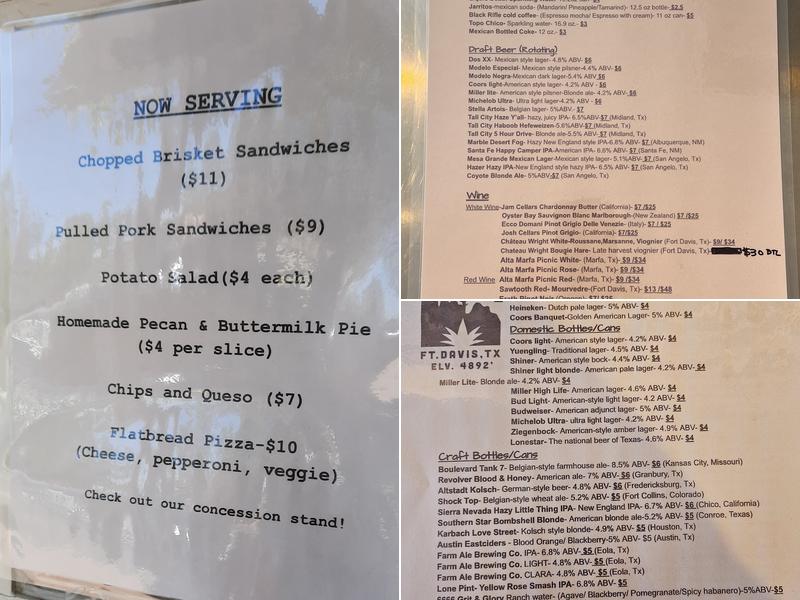 NOW SERVING
Chopped Brisket Sandwiches
($11)
Pulled Pork Sandwiches ($9)
Potato Salad($4 each)
Homemade Pecan & Buttermilk Pie
($4 per slice)
Chips and Queso ($7)
Flatbread Pizza-$10
(Cheese, pepperoni, veggie)
Check out our concession stand!
Jarritos-mexican soda- (Mandarin/ Pineapple/Tamarind)- 12.5 oz bottle-$2.5
Black Rifle cold coffee- (Espresso mocha/ Espresso with cream)- 11 oz can- $5
Topo Chico- Sparkling water- 16.9 oz.- $3
Mexican Bottled Coke- 12 oz.- $3
Draft Beer (Rotating)
Dos XX- Mexican style lager- 4.8% ABV- $6
Modelo Especial- Mexican style pilsner-4.4% ABV- $6
Modelo Negra-Mexican dark lager-5.4% ABV $6
Coors light-American style lager- 4.2% ABV - $6
Miller lite- American style pilsner-Blonde ale- 4.2% ABV- $6
Michelob Ultra- Ultra light lager-4.2% ABV - $6
Stella Artois- Belgian lager- 5%ABV- $7
Tall City Haze Y'all- hazy, juicy IPA- 6.5%ABV-$7 (Midland, Tx)
Tall City Haboob Hefeweizen-5.6%ABV-$7 (Midland, Tx)
Tall City 5 Hour Drive- Blonde ale-5.5% ABV- $7 (Midland, Tx)
Marble Desert Fog- Hazy New England style IPA-6.8% ABV- $7 (Albuquerque, NM)
Santa Fe Happy Camper IPA-American IPA- 6.6% ABV- $7 (Santa Fe, NM)
Mesa Grande Mexican Lager-Mexican style lager- 5.1%ABV- $7 (San Angelo, Tx)
Hazer Hazy IPA-New England style hazy IPA- 6.5% ABV- $7 (San Angelo, Tx)
Coyote Blonde Ale- 5%ABV-$7 (San Angelo, Tx)
Wine
White Wine-Jam Cellars Chardonnay Butter (California)- $7 /$25
Oyster Bay Sauvignon Blanc Marlborough-(New Zealand) $7 /$25
Ecco Domani Pinot Grigio Delle Venezie- (Italy)- $7 / $25
Josh Cellars Pinot Grigio- (California)- $7/$25
Château Wright White-Roussane,Marsanne, Viognier (Fort Davis, Tx)- $9/ $34
Chateau Wright Bougie Hare- Late harvest viognier (Fort Davis, Tx)- $30 BTL
Alta Marfa Picnic White- (Marfa, Tx)- $9 /$34
Alta Marfa Picnic Rose- (Marfa, Tx)- $9 /$34
Red Wine Alta Marfa Picnic Red- (Marfa, Tx)- $9 /$34
Sawtooth Red- Mourvedre-(Fort Davis, Tx)- $13 /$48
FT.DAVIS,TX
ELV. 4892'
Heineken- Dutch pale lager- 5% ABV- $4
Coors Banquet-Golden American Lager- 5% ABV- $4
Domestic Bottles/Cans
Coors light- American style lager- 4.2% ABV- $4
Yuengling- Traditional lager- 4.5% ABV- $4
Shiner- American style bock- 4.4% ABV- $4
Shiner light blonde- American pale lager- 4.2% ABV- $4
Miller Lite- Blonde ale- 4.2% ABV- $4
Miller High Life- American lager- 4.6% ABV- $4
Bud Light- American-style light lager- 4.2 ABV- $4
Budweiser- American adjunct lager- 5% ABV- $4
Michelob Ultra- ultra light lager- 4.2% ABV- $4
Ziegenbock- American-style amber lager- 4.9% ABV- $4
Lonestar- The national beer of Texas- 4.6% ABV- $4
Craft Bottles/Cans
Boulevard Tank 7- Belgian-style farmhouse ale- 8.5% ABV- $6 (Kansas City, Missouri)
Revolver Blood & Honey- American ale- 7% ABV- $6 (Granbury, Tx)
Altstadt Kolsch- German-style beer- 4.8% ABV- $6 (Fredericksburg, Tx)
Shock Top- Belgian-style wheat ale- 5.2% ABV- $5 (Fort Collins, Colorado)
Sierra Nevada Hazy Little Thing IPA- New England IPA- 6.7% ABV- $6 (Chico, California)
Southern Star Bombshell Blonde- American blonde ale-5.2% ABV- $5 (Conroe, Texas)
Karbach Love Street- Kolsch style blonde- 4.9% ABV- $5 (Houston, Tx)
Austin Eastciders - Blood Orange/ Blackberry-5% ABV- $5 (Austin, Tx)
Farm Ale Brewing Co. IPA- 6.8% ABV- $5 (Eola, Tx)
Farm Ale Brewing Co. LIGHT- 4.8% ABV- $5 (Eola, Tx)
Farm Ale Brewing Co. CLARA- 4.8% ABV- $5 (Eola, Tx)
Lone Pint- Yellow Rose Smash IPA- 6.8% ABV- $5
6666 Grit & Glory Ranch water- (Agave/ Blackberry/ Pomegranate/Spicy habanero)-5%ABV-$5